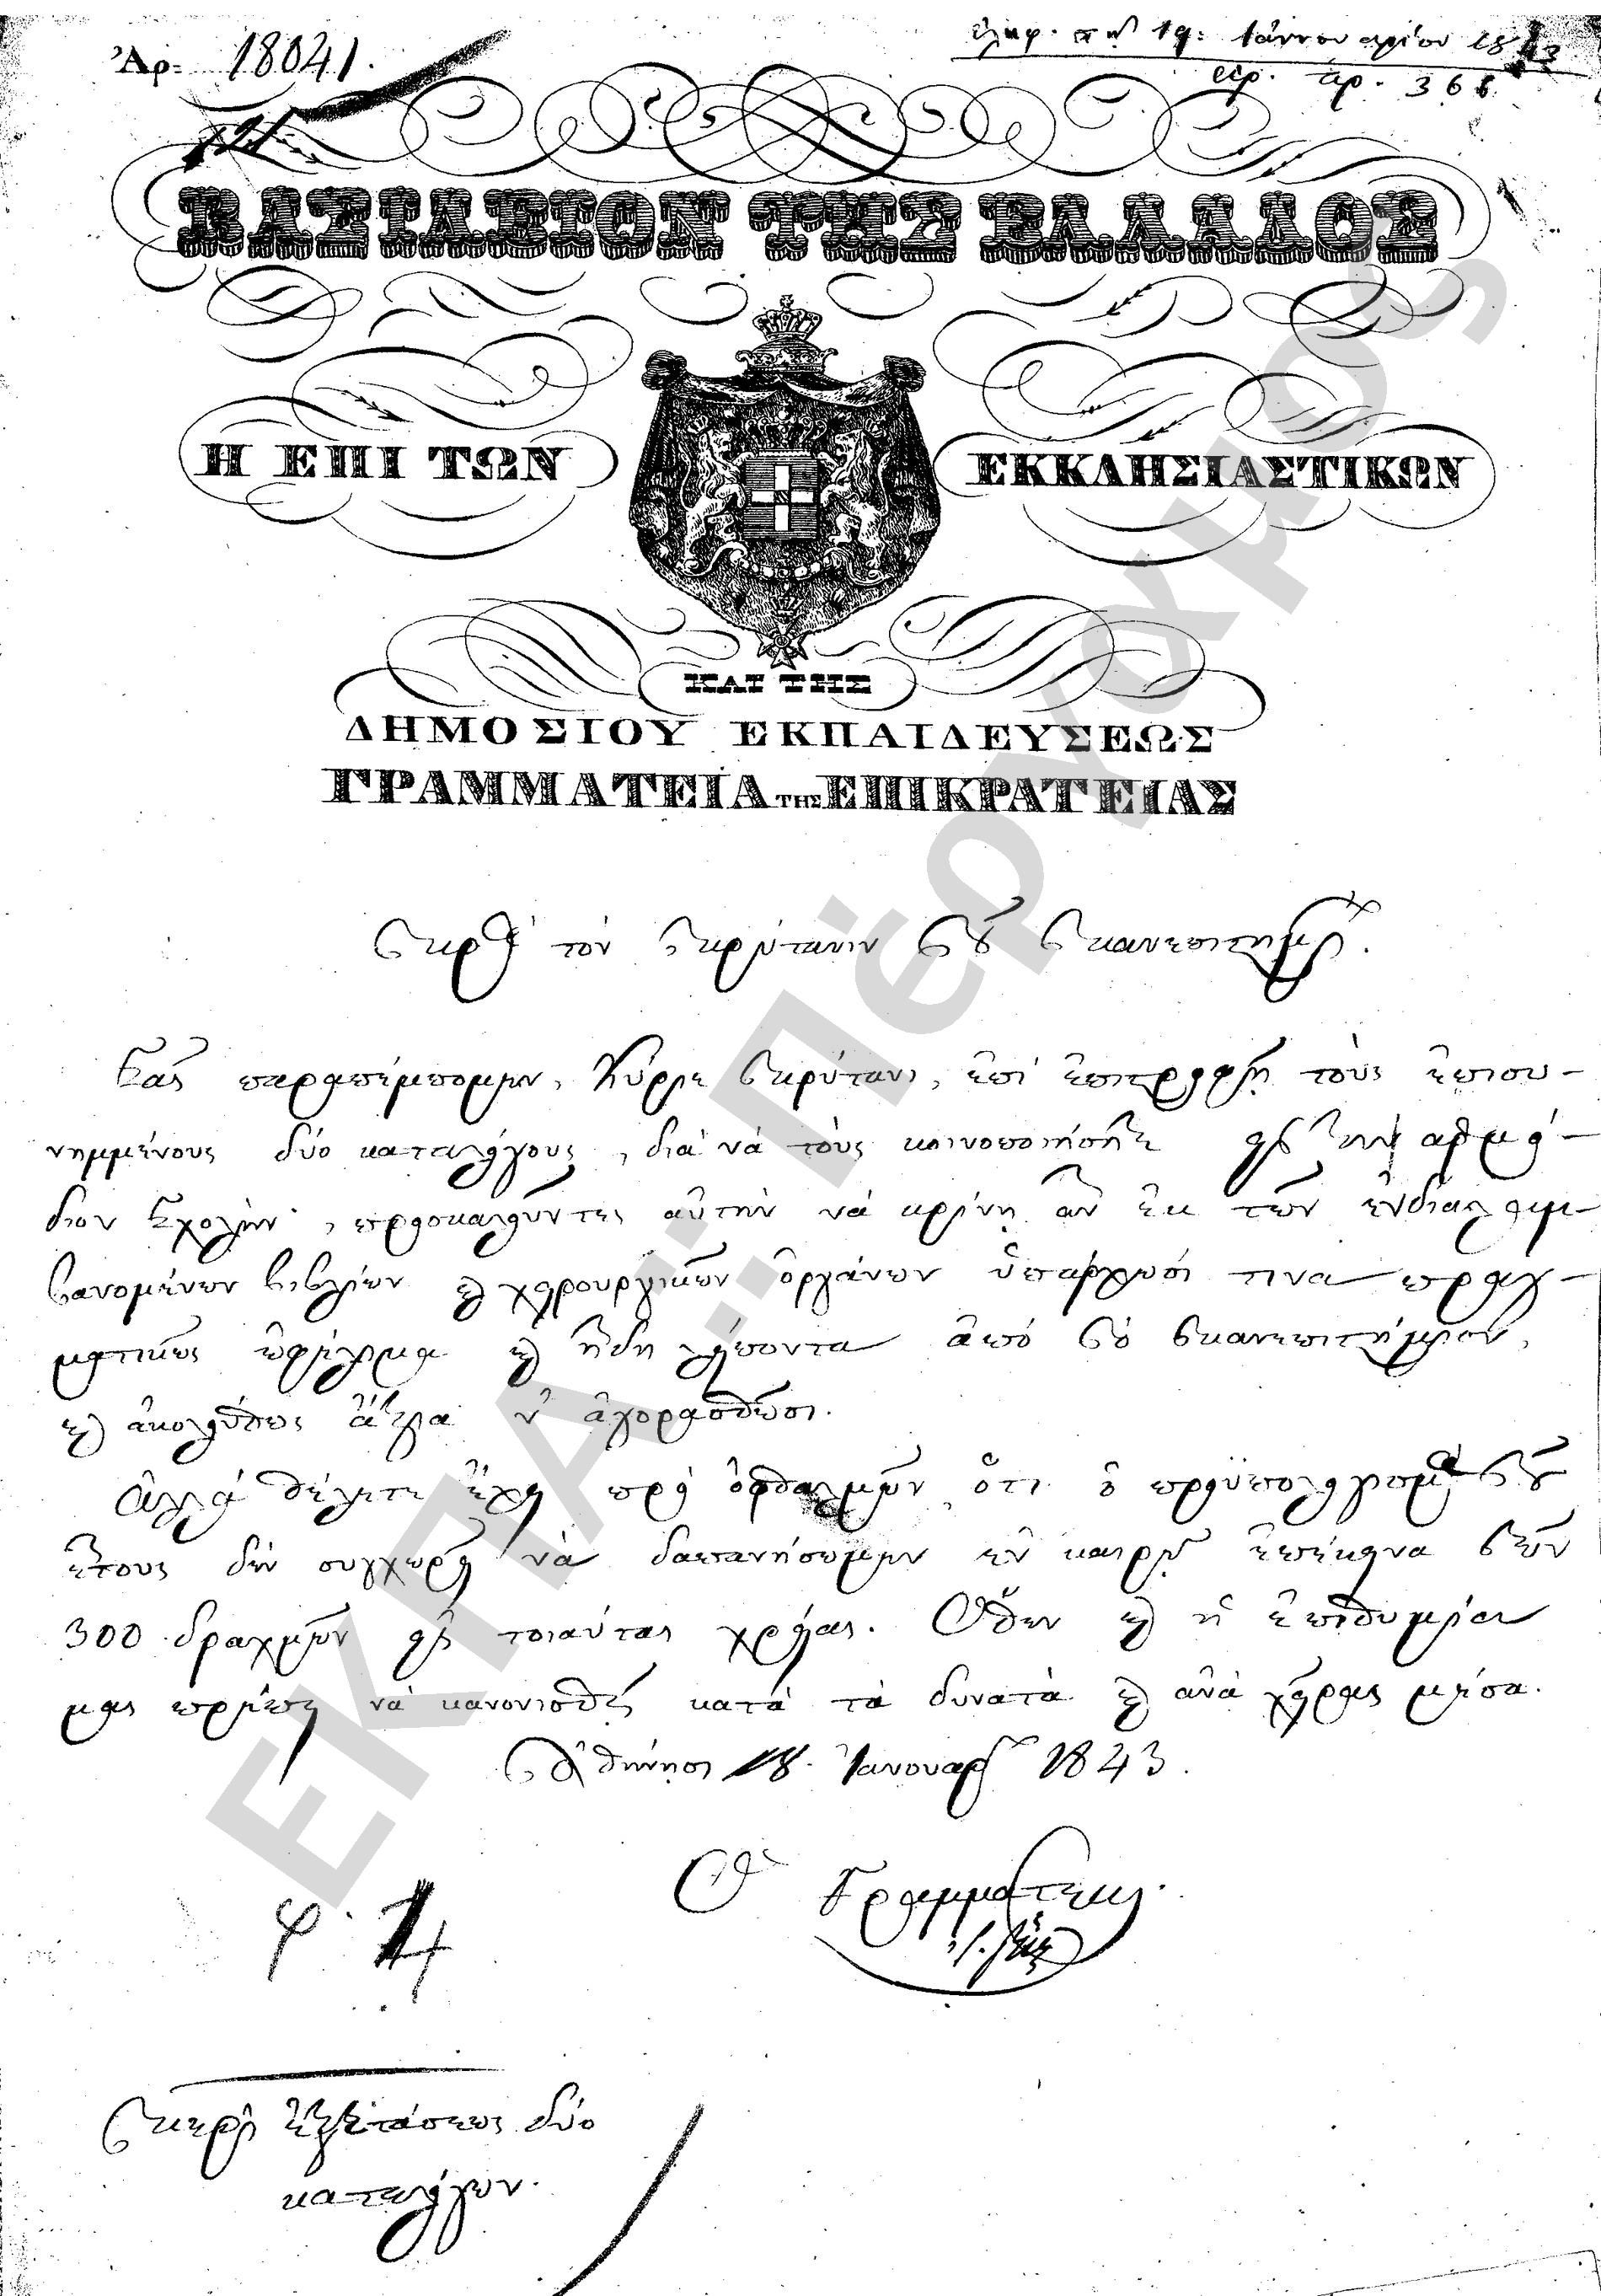 Ἀρ. 18041.
ἐλήφ. τῇ 19: Ἰαννουαρίου 1843
ἀρ. 366
ΒΑΣΙΛΕΙΟΝ ΤΗΣ ΕΛΛΑΔΟΣ
Η ΕΠΙ ΤΩΝ ΕΚΚΛΗΣΙΑΣΤΙΚΩΝ
ΚΑΙ ΤΗΣ
ΔΗΜΟΣΙΟΥ ΕΚΠΑΙΔΕΥΣΕΩΣ
ΓΡΑΜΜΑΤΕΙΑ ΤΗΣ ΕΠΙΚΡΑΤΕΙΑΣ
Πρὸς τὸν Πρύτανιν τοῦ Πανεπιστημίου.
Σᾶς παραπέμπομεν, Κύριε Πρύτανι, ἐπὶ ἐπιστροφῇ τοὺς ἐπισυ-
νημμένους δύο καταλόγους, διὰ νὰ τοὺς κοινοποιήσητε εἰς τὴν ἁρμό-
διον Σχολὴν, προσκαλοῦντες αὐτὴν νὰ κρίνῃ ἂν ἐκ τῶν ἐνδιαλαμ-
βανομένων βιβλίων καὶ χειρουργικῶν ὀργάνων ὑπάρχωσί τινα πραγ-
ματικῶς ὠφέλιμα καὶ ἤδη λείποντα ἀπὸ τὸ Πανεπιστήμιον,
καὶ ἀκολούθως ἄξια ν' ἀγορασθῶσι.
Ἀλλὰ θέλετε ἔχει πρὸ ὀφθαλμῶν, ὅτι ὁ προϋπολογισμὸς τοῦ
ἔτους δὲν συγχωρεῖ νὰ δαπανήσωμεν ἐν καιρῷ ἐπέκεινα τῶν
300 δραχμῶν εἰς τοιαύτας χρείας. Ὅθεν καὶ ἡ ἐπιθυμία
μας πρέπει νὰ κανονισθῇ κατὰ τὰ δυνατὰ καὶ ἀνὰ χεῖρας μέσα.
Ἀθήνησι 18. Ἰανουαρ 1843.
Ὁ Γραμματεύς.
Περὶ ἐξετάσεως δύο
καταλόγων.
ΕΚΠΑ.: Πέργαμος